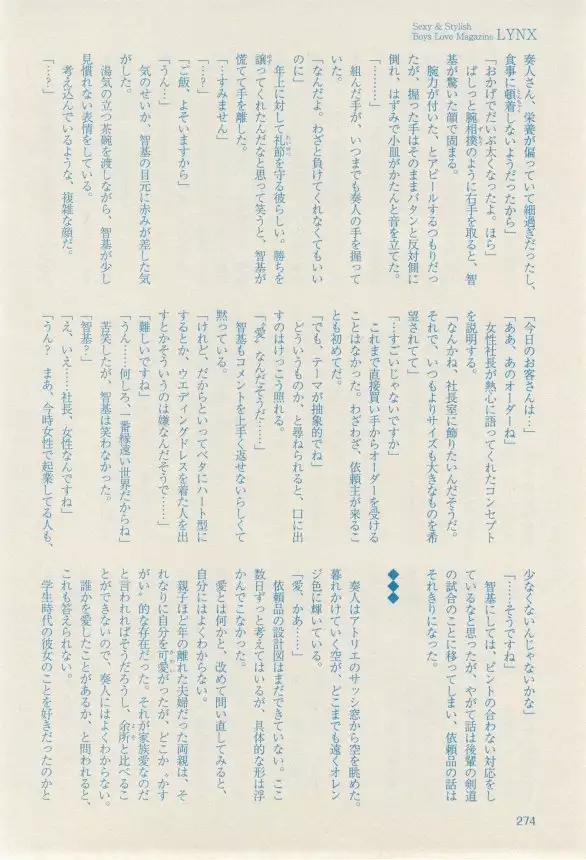 Sexy & Stylish
Boys Love Magazine LYNX
奏人さん、栄養が偏っていて細過ぎだったし、
食事に頓着しないようだったから」
「おかげでだいぶ太くなったよ。ほら」
ぱしっと腕相撲のように右手を取ると、智
基が驚いた顔で固まる。
腕力が付いた、とアピールするつもりだっ
たが、握った手はそのままパタンと反対側に
倒れ、はずみで小皿がかたんと音を立てた。
「………」
組んだ手が、いつまでも奏人の手を握って
いた。
「なんだよ。わざと負けてくれなくてもいい
のに」
年上に対して礼節を守る彼らしい。勝ちを
譲ってくれたんだなと思って笑うと、智基が
慌てて手を離した。
「…すみません」
「…?」
「ご飯、よそいますから」
「うん…」
気のせいか、智基の目元に赤みが差した気
がした。
湯気の立つ茶碗を渡しながら、智基が少し
見慣れない表情をしている。
考え込んでいるような、複雑な顔だ。
「…?」
「今日のお客さんは…」
「ああ、あのオーダーね」
女性社長が熱心に語ってくれたコンセプト
を説明する。
「なんかね、社長室に飾りたいんだそうだ。
それで、いつもよりサイズも大きなものを希
望されてて」
「…すごいじゃないですか」
これまで直接買い手からオーダーを受ける
ことはなかった。わざわざ、依頼主が来るこ
とも初めてだ。
「でも、テーマが抽象的でね」
どういうものか、と尋ねられると、口に出
すのはけっこう照れる。
「〝愛〟なんだそうだ……」
智基もコメントを上手く返せないらしくて
黙っている。
「けれど、だからといってベタにハート型に
するとか、ウエディングドレスを着た人を出
すとかそういうのは嫌なんだそうで……」
「難しいですね」
「うん……何しろ、一番縁遠い世界だからね」
苦笑したが、智基は笑わなかった。
「智基?」
「え、いえ……社長、女性なんですね」
「うん? まあ、今時女性で起業してる人も、
少なくないんじゃないかな」
「……そうですね」
智基にしては、ピントの合わない対応をし
ているなと思ったが、やがて話は後輩の剣道
の試合のことに移ってしまい、依頼品の話は
それきりになった。
◆◆◆
奏人はアトリエのサッシ窓から空を眺めた。
暮れかけていく空が、どこまでも遠くオレン
ジ色に輝いている。
「愛、かあ……」
依頼品の設計図はまだできていない。ここ
数日ずっと考えてはいるが、具体的な形は浮
かんでこなかった。
愛とは何かと、改めて問い直してみると、
自分にはよくわからない。
親子ほど年の離れた夫婦だった両親は、そ
れなりに自分を可愛がったが、どこか〝かす
がい〟的な存在だった。それが家族愛なのだ
と言われればそうだろうし、余所と比べるこ
とができないので、奏人にはよくわからない。
誰かを愛したことがあるか、と問われると、
これも答えられない。
学生時代の彼女のことを好きだったのかと
274